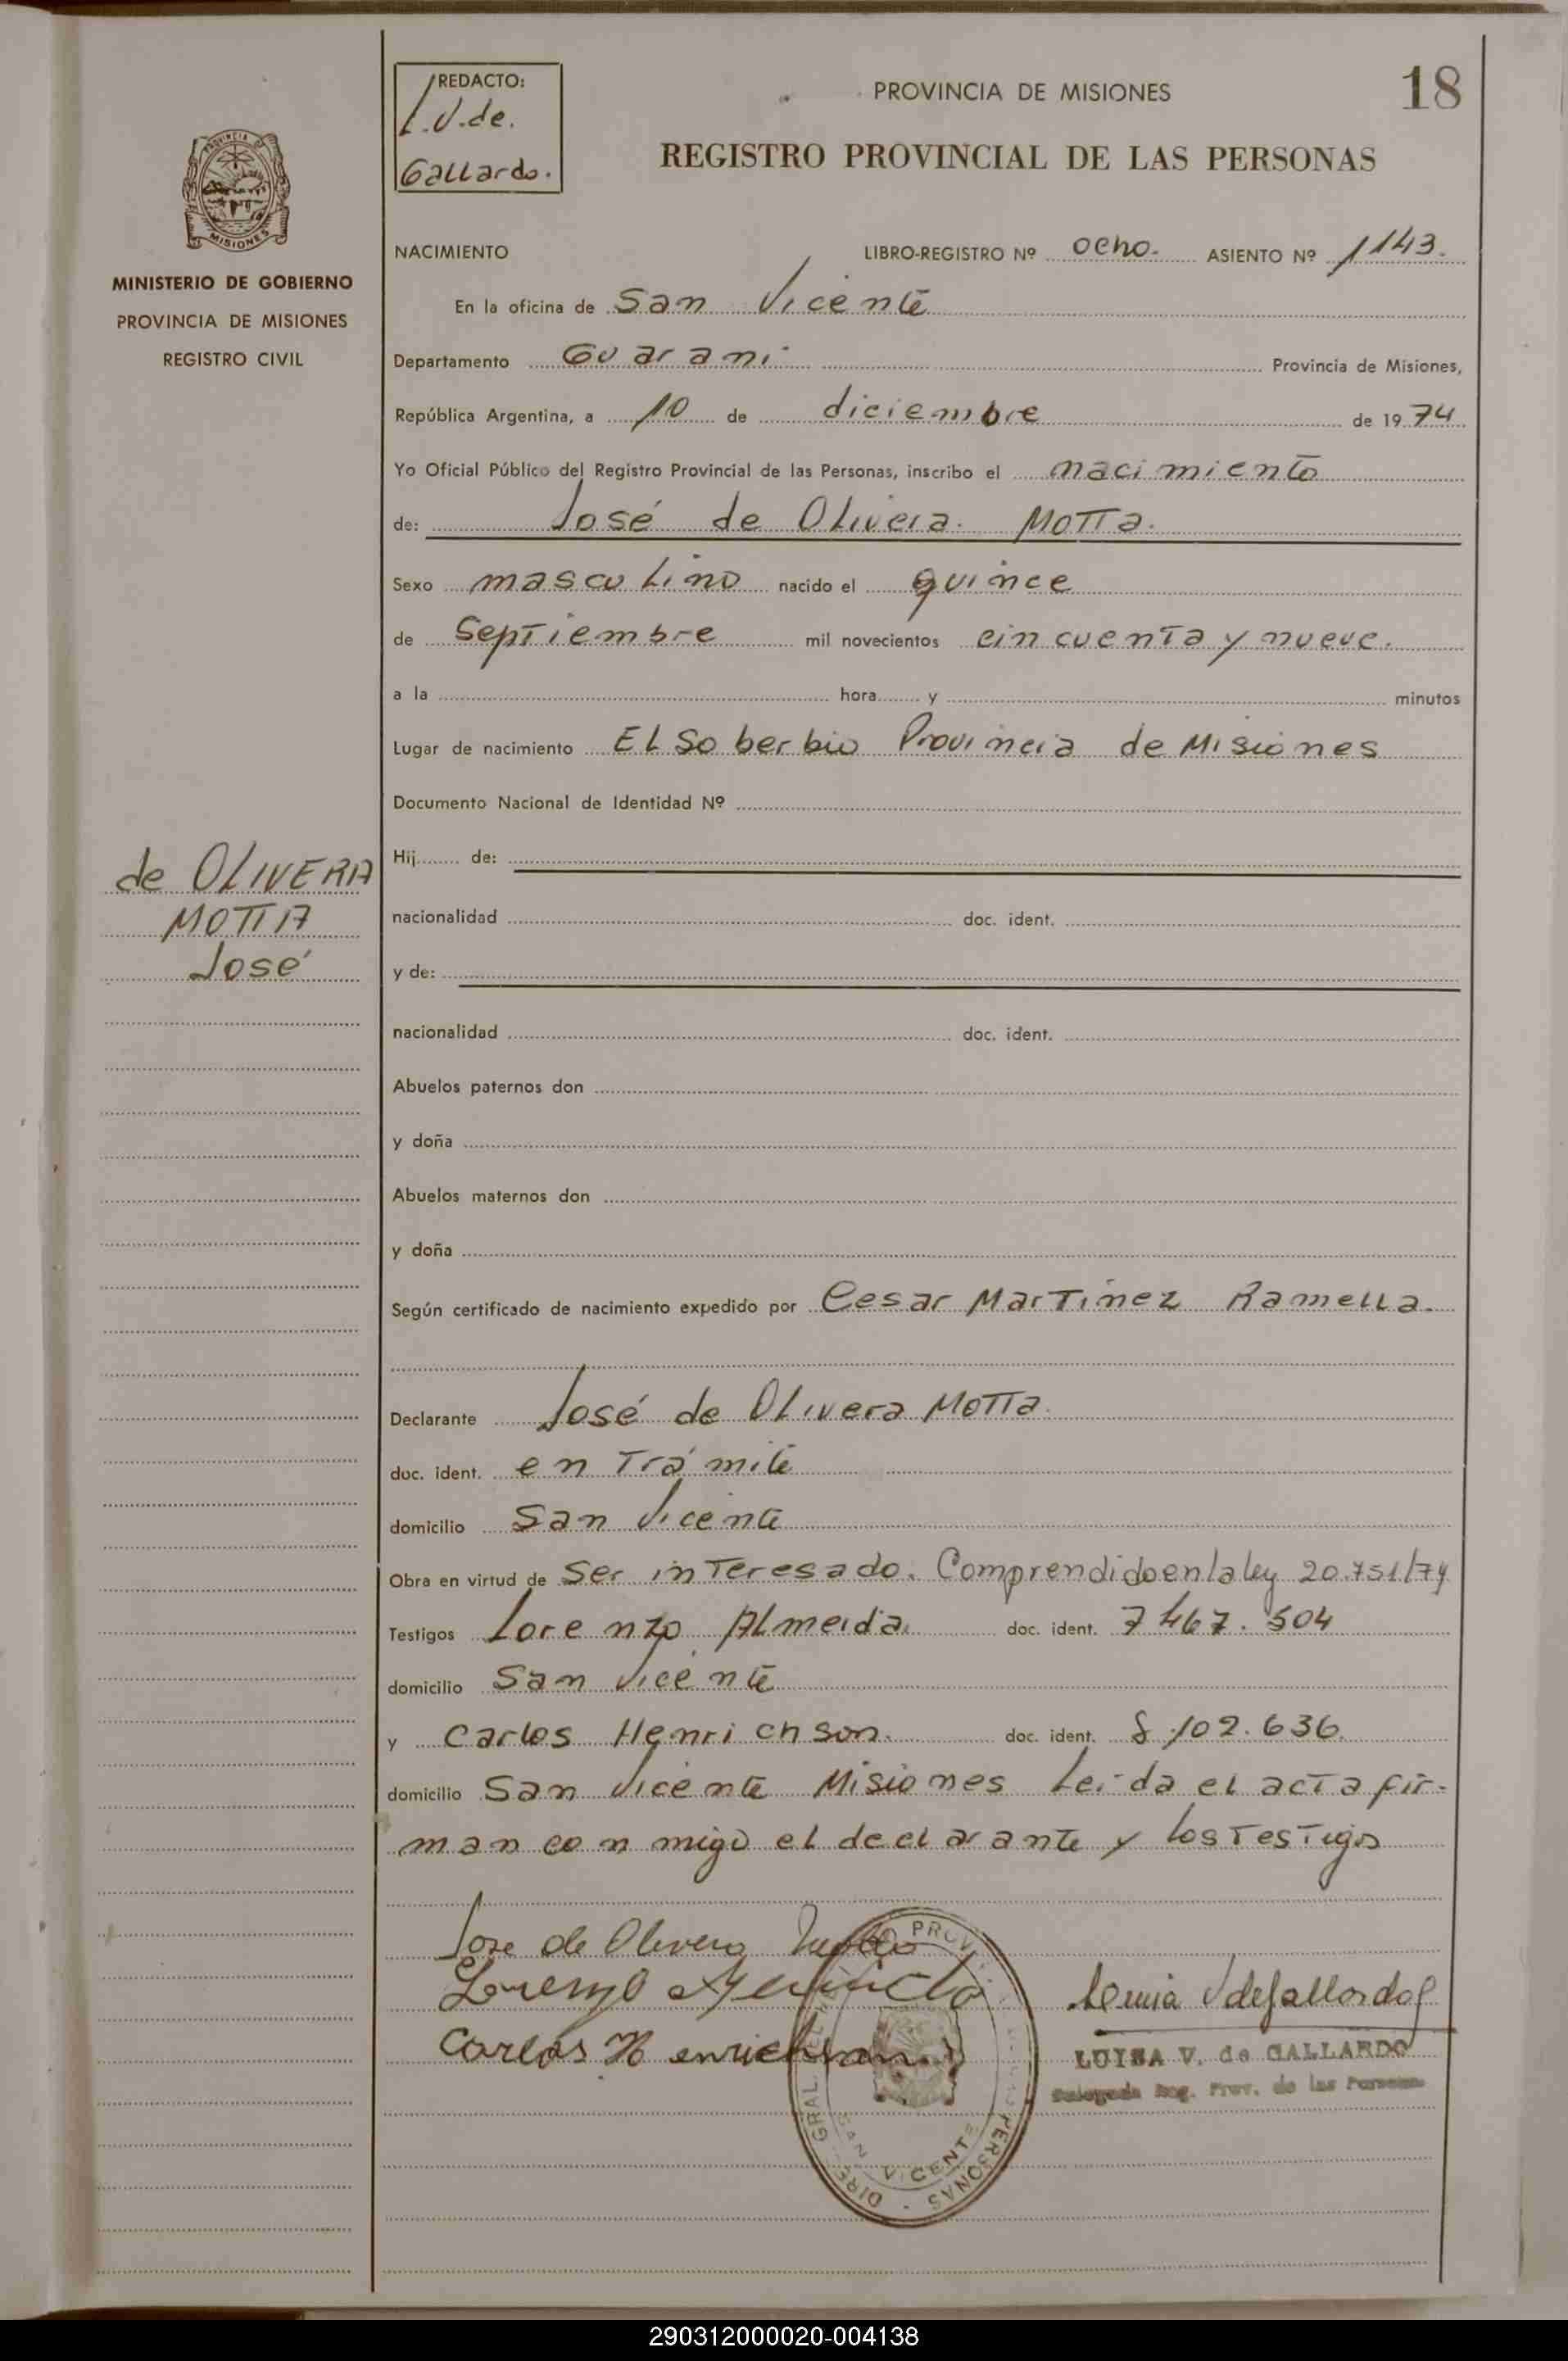 REDACTO:
L.V.de.
Gallardo.
PROVINCIA DE MISIONES
18
REGISTRO PROVINCIAL DE LAS PERSONAS
PROVINCIA DE
MISIONES
MINISTERIO DE GOBIERNO
PROVINCIA DE MISIONES
REGISTRO CIVIL
NACIMIENTO LIBRO-REGISTRO Nº ocho. ASIENTO Nº 1143.
En la oficina de San Vicente
Departamento Guaraní Provincia de Misiones,
República Argentina, a 10 de diciembre de 1974
Yo Oficial Público del Registro Provincial de las Personas, inscribo el nacimiento
de: José de Olivera Motta.
Sexo masculino nacido el quince
de Septiembre mil novecientos cincuenta y nueve.
a la hora y minutos
Lugar de nacimiento El Soberbio Provincia de Misiones
Documento Nacional de Identidad Nº
de OLIVERA
MOTTA
José
Hij de:
nacionalidad doc. ident.
y de:
nacionalidad doc. ident.
Abuelos paternos don
y doña
Abuelos maternos don
y doña
Según certificado de nacimiento expedido por Cesar Martínez Ramella.
Declarante José de Olivera Motta.
doc. ident. en Trámite
domicilio San Vicente
Obra en virtud de ser interesado. Comprendido en la ley 20.751/74
Testigos Lorenzo Almeida. doc. ident. 7467.504
domicilio San Vicente
y Carlos Henrichson. doc. ident. 8.102.636.
domicilio San Vicente Misiones Leída el acta fir-
man conmigo el declarante y los Testigos
Jose de Olivera
Lorenzo
Carlos Henrichson
Luisa V de Gallardo
LUISA V. de GALLARDO
Delegada Reg. Prov. de las Personas
DIRE. GRAL. PROV. PERSONAS
SAN VICENTE
290312000020-004138